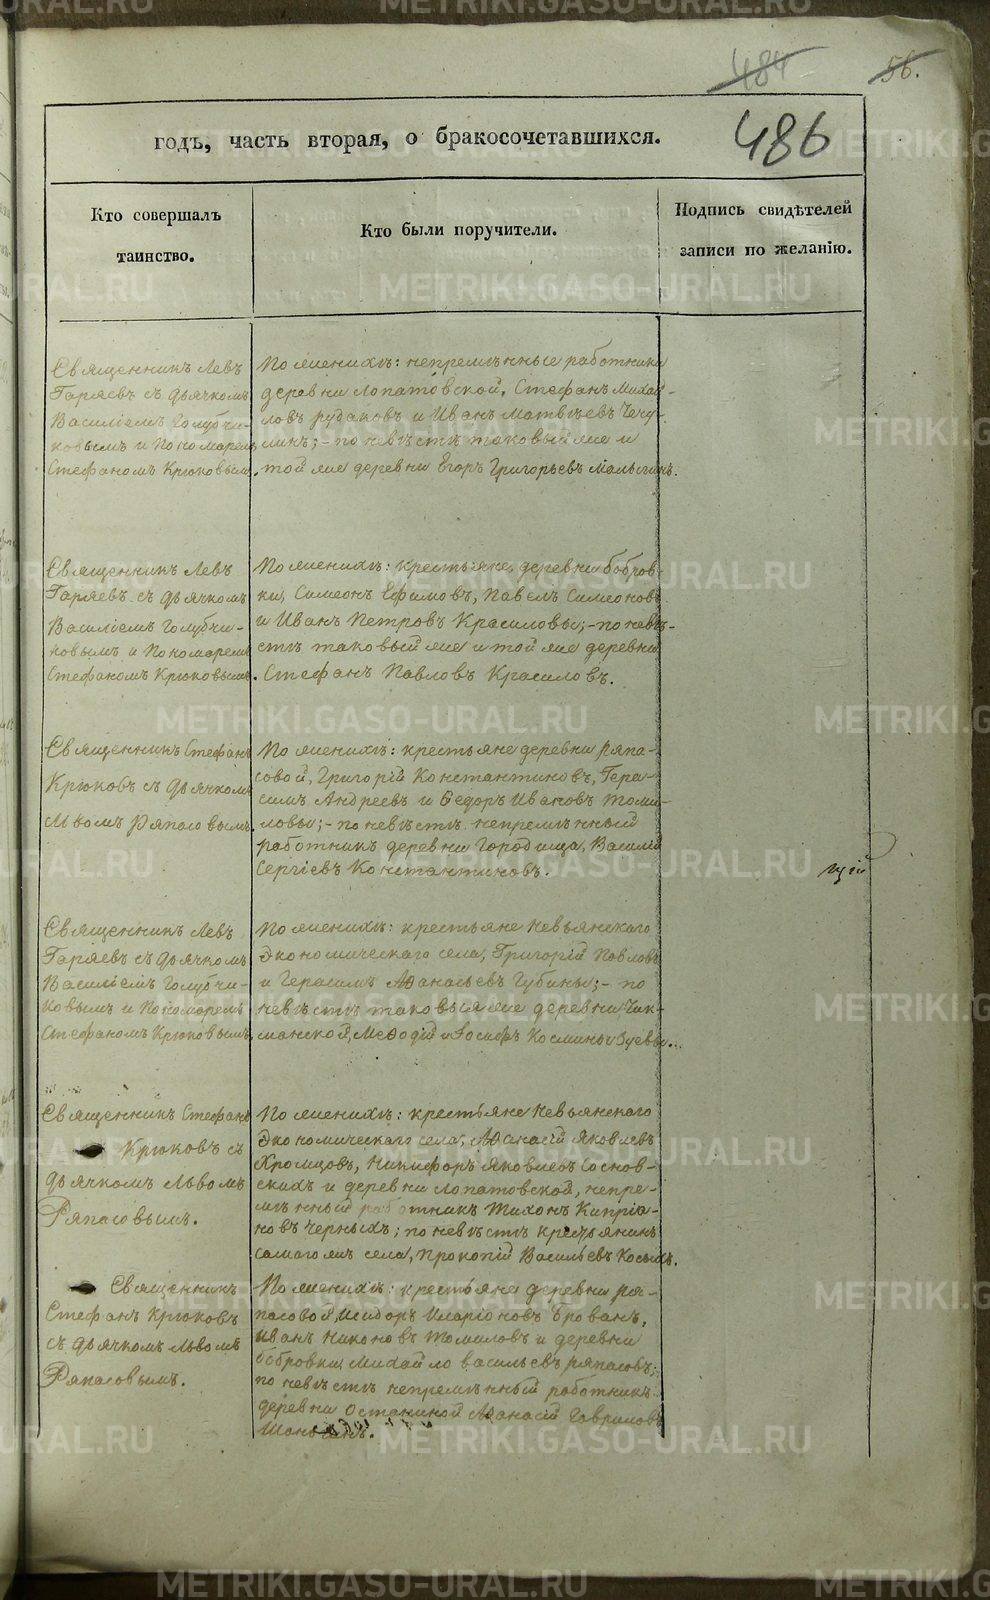 484
56.
486
годъ, часть вторая, о бракосочетавшихся.
Кто совершалъ
таинство.
Кто были поручители.
Подпись свидѣтелей
записи по желанію.
Священникъ Левъ
Гаряевъ съ дьячкомъ
Василіемъ Голубчи-
ковымъ и Пономаремъ
Стефаномъ Крюковым.
По женихѣ: непремѣнные работники
деревни Лопатовской, Стефанъ Михай-
ловъ рудаковъ и Иванъ Матвѣевъ Чечу-
линъ; - по невѣстѣ таковый же и
той же деревни Егоръ Григорьевъ Малыгинъ.
Священникъ Левъ
Гаряевъ съ дьячкомъ
Василіемъ Голубчи-
ковымъ и Пономаремъ
Стефаномъ Крюковымъ.
По женихѣ: крестьяне деревни бобров-
ки, Симеонъ Ефимовъ, Павелъ Симеоновъ
и Иванъ Петровъ Красиловы; - по невѣ-
стѣ таковый же и той же деревни
Стефанъ Павловъ Красиловъ.
Священникъ Стефанъ
Крюковъ съ дьячкомъ
Львомъ Ряпасовымъ.
По женихѣ: крестьяне деревни ряпа-
совой, Григорій Константиновъ, Гера-
симъ Андреевъ и Ѳедоръ Ивановъ Томи-
ловы; - по невѣстѣ непремѣнный
работникъ деревни Городища, Василій
Сергіевъ Константиновъ.
щій
Священникъ Левъ
Гаряевъ съ дьячкомъ
Василіемъ Голубчи-
ковымъ и Пономаремъ
Стефаномъ Крюковымъ.
По женихѣ: крестьяне Невьянскаго
Экономическаго села, Григорій Павловъ
и Герасимъ Аѳанасьевъ Губины; - по
невѣстѣ таковыя же деревни Чик-
манской, Меѳодій и Іосифъ Космины Зуевы.
Священникъ Стефанъ
Крюковъ съ
дьячкомъ Львомъ
Ряпасовымъ.
По женихѣ: крестьяне Невьянскаго
Экономическаго села, Аѳанасій Яковлевъ
Хромцовъ, Никифоръ Яковлевъ Соснов-
скихъ и деревни Лопатовской, непре-
мѣнный работникъ Тихонъ Кипріа-
новъ Черныхъ; по невѣстѣ крестьянинъ
самаго жъ села, Прокопій Васильевъ Косыхъ.
Священникъ
Стефанъ Крюковъ
съ дьячкомъ Львомъ
Ряпасовымъ.
По женихѣ: крестьяне деревни ря-
пасовой, Исидоръ Иларіоновъ Брованъ,
Иванъ Никоновъ Томиловъ и деревни
бобровки, Михайло Васильевъ ряпасовъ;
по невѣстѣ непремѣнный работникъ
деревни Останиной Аѳанасій Гавриловъ
METRIKI.GASO-URAL.RU